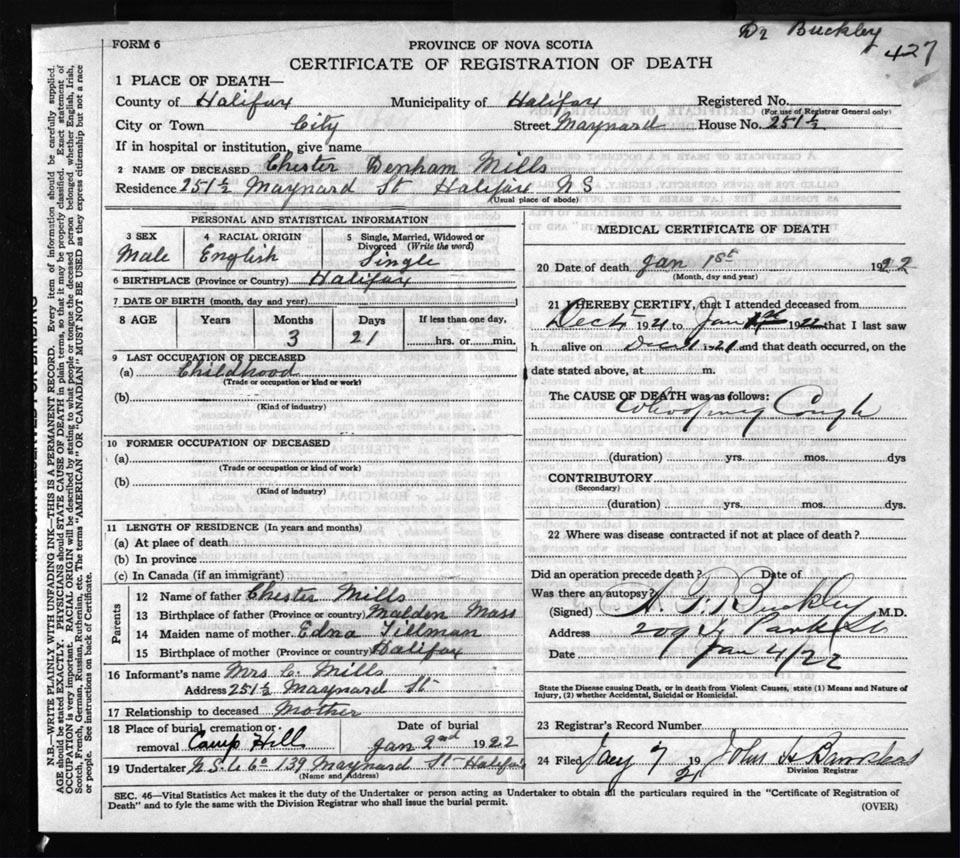 Dr Buckley
427
FORM 6
PROVINCE OF NOVA SCOTIA
CERTIFICATE OF REGISTRATION OF DEATH
1 PLACE OF DEATH—
County of Halifax Municipality of Halifax Registered No.
(For use of Registrar General only)
City or Town City Street Maynard House No. 251½
If in hospital or institution, give name
2 NAME OF DECEASED Chester Denham Mills
Residence 251½ Maynard St Halifax NS
(Usual place of abode)
PERSONAL AND STATISTICAL INFORMATION
3 SEX 4 RACIAL ORIGIN 5 Single, Married, Widowed or Divorced (Write the word)
Male English Single
6 BIRTHPLACE (Province or Country) Halifax
7 DATE OF BIRTH (month, day and year)
8 AGE Years Months Days If less than one day,
3 21 hrs. or min.
9 LAST OCCUPATION OF DECEASED
(a) Childhood
(Trade or occupation or kind or work)
(b)
(Kind of industry)
10 FORMER OCCUPATION OF DECEASED
(a)
(Trade or occupation or kind or work)
(b)
(Kind of industry)
11 LENGTH OF RESIDENCE (In years and months)
(a) At place of death
(b) In province
(c) In Canada (if an immigrant)
Parents
12 Name of father Chester Mills
13 Birthplace of father (Province or country) Malden Mass
14 Maiden name of mother Edna Tillman
15 Birthplace of mother (Province or country) Halifax
16 Informant's name Mrs C. Mills
Address 251½ Maynard St
17 Relationship to deceased Mother
18 Place of burial, cremation or removal Camp Hill
Date of burial
Jan 2nd 1922
19 Undertaker N.S.U.Co 139 Maynard St Halifax
(Name and Address)
MEDICAL CERTIFICATE OF DEATH
20 Date of death Jan 1st 1922
(Month, day and year)
21 I HEREBY CERTIFY, that I attended deceased from
Dec 1921 to Jan 1922 that I last saw
h alive on Dec 1921 and that death occurred, on the
date stated above, at m.
The CAUSE OF DEATH was as follows:
Whooping Cough
(duration) yrs. mos. dys
CONTRIBUTORY
(Secondary)
(duration) yrs. mos. dys.
22 Where was disease contracted if not at place of death?
Did an operation precede death? Date of
Was there an autopsy?
(Signed) Buckley M.D.
Address 209 Park St
Date Jan 4/22
State the Disease causing Death, or in death from Violent Causes, state (1) Means and Nature of
Injury, (2) whether Accidental, Suicidal or Homicidal.
23 Registrar's Record Number
24 Filed Jany 7 19 John H
Division Registrar
SEC. 46—Vital Statistics Act makes it the duty of the Undertaker or person acting as Undertaker to obtain all the particulars required in the "Certificate of Registration of
Death" and to fyle the same with the Division Registrar who shall issue the burial permit.
(OVER)
N.B.—WRITE PLAINLY WITH UNFADING INK—THIS IS A PERMANENT RECORD. Every item of information should be carefully supplied.
AGE should be stated EXACTLY. PHYSICIANS should STATE CAUSE OF DEATH in plain terms, so that it may be properly classified. Exact statement of
OCCUPATION is very important. RACIAL ORIGIN will be described by stating to what people or tongue the deceased person belonged whether English, Irish,
Scotch, French, German, Russian, Ruthenian, etc. The terms "AMERICAN" OR "CANADIAN" MUST NOT BE USED as they express citizenship but not a race
or people. See instructions on back of Certificate.